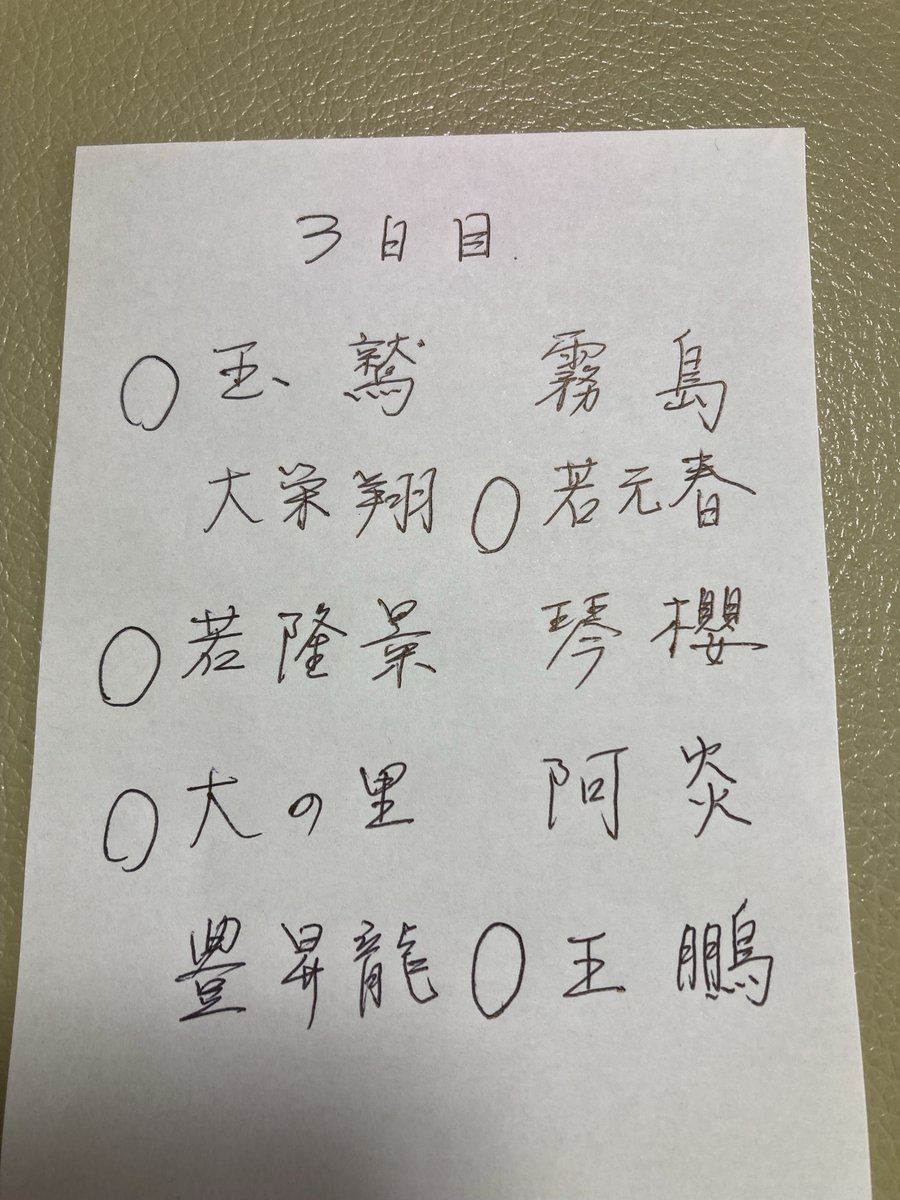 3日目
○玉鷲 霧島
大栄翔 ○若元春
○若隆景 琴櫻
○大の里 阿炎
豊昇龍 ○王鵬